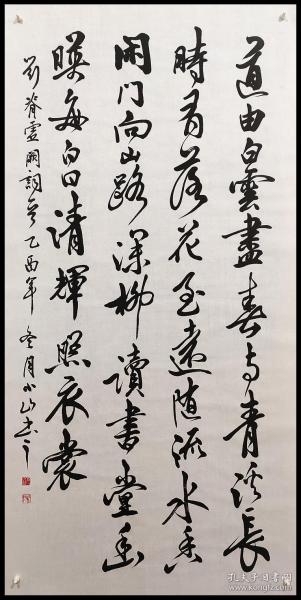 道由白雲盡春与青溪長
時有落花至遠随流水香
閑門向山路深柳讀書堂幽
映每白日清輝照衣裳
劉脊虚闕詞一首 乙酉年冬月小山書
孔夫子旧书网